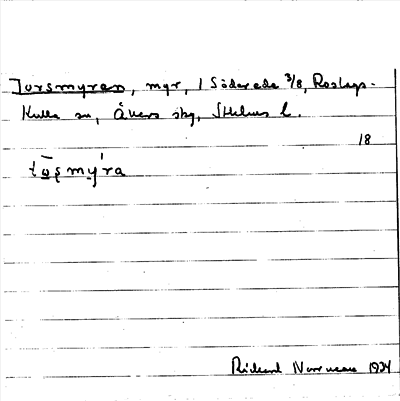 Torsmyren, myr, 1 Söderede 3/8, Roslags-
Kulla sn, Åkers skg, Sthlms l.
18
to̅s̨mýra
Rickard Norrman 1934